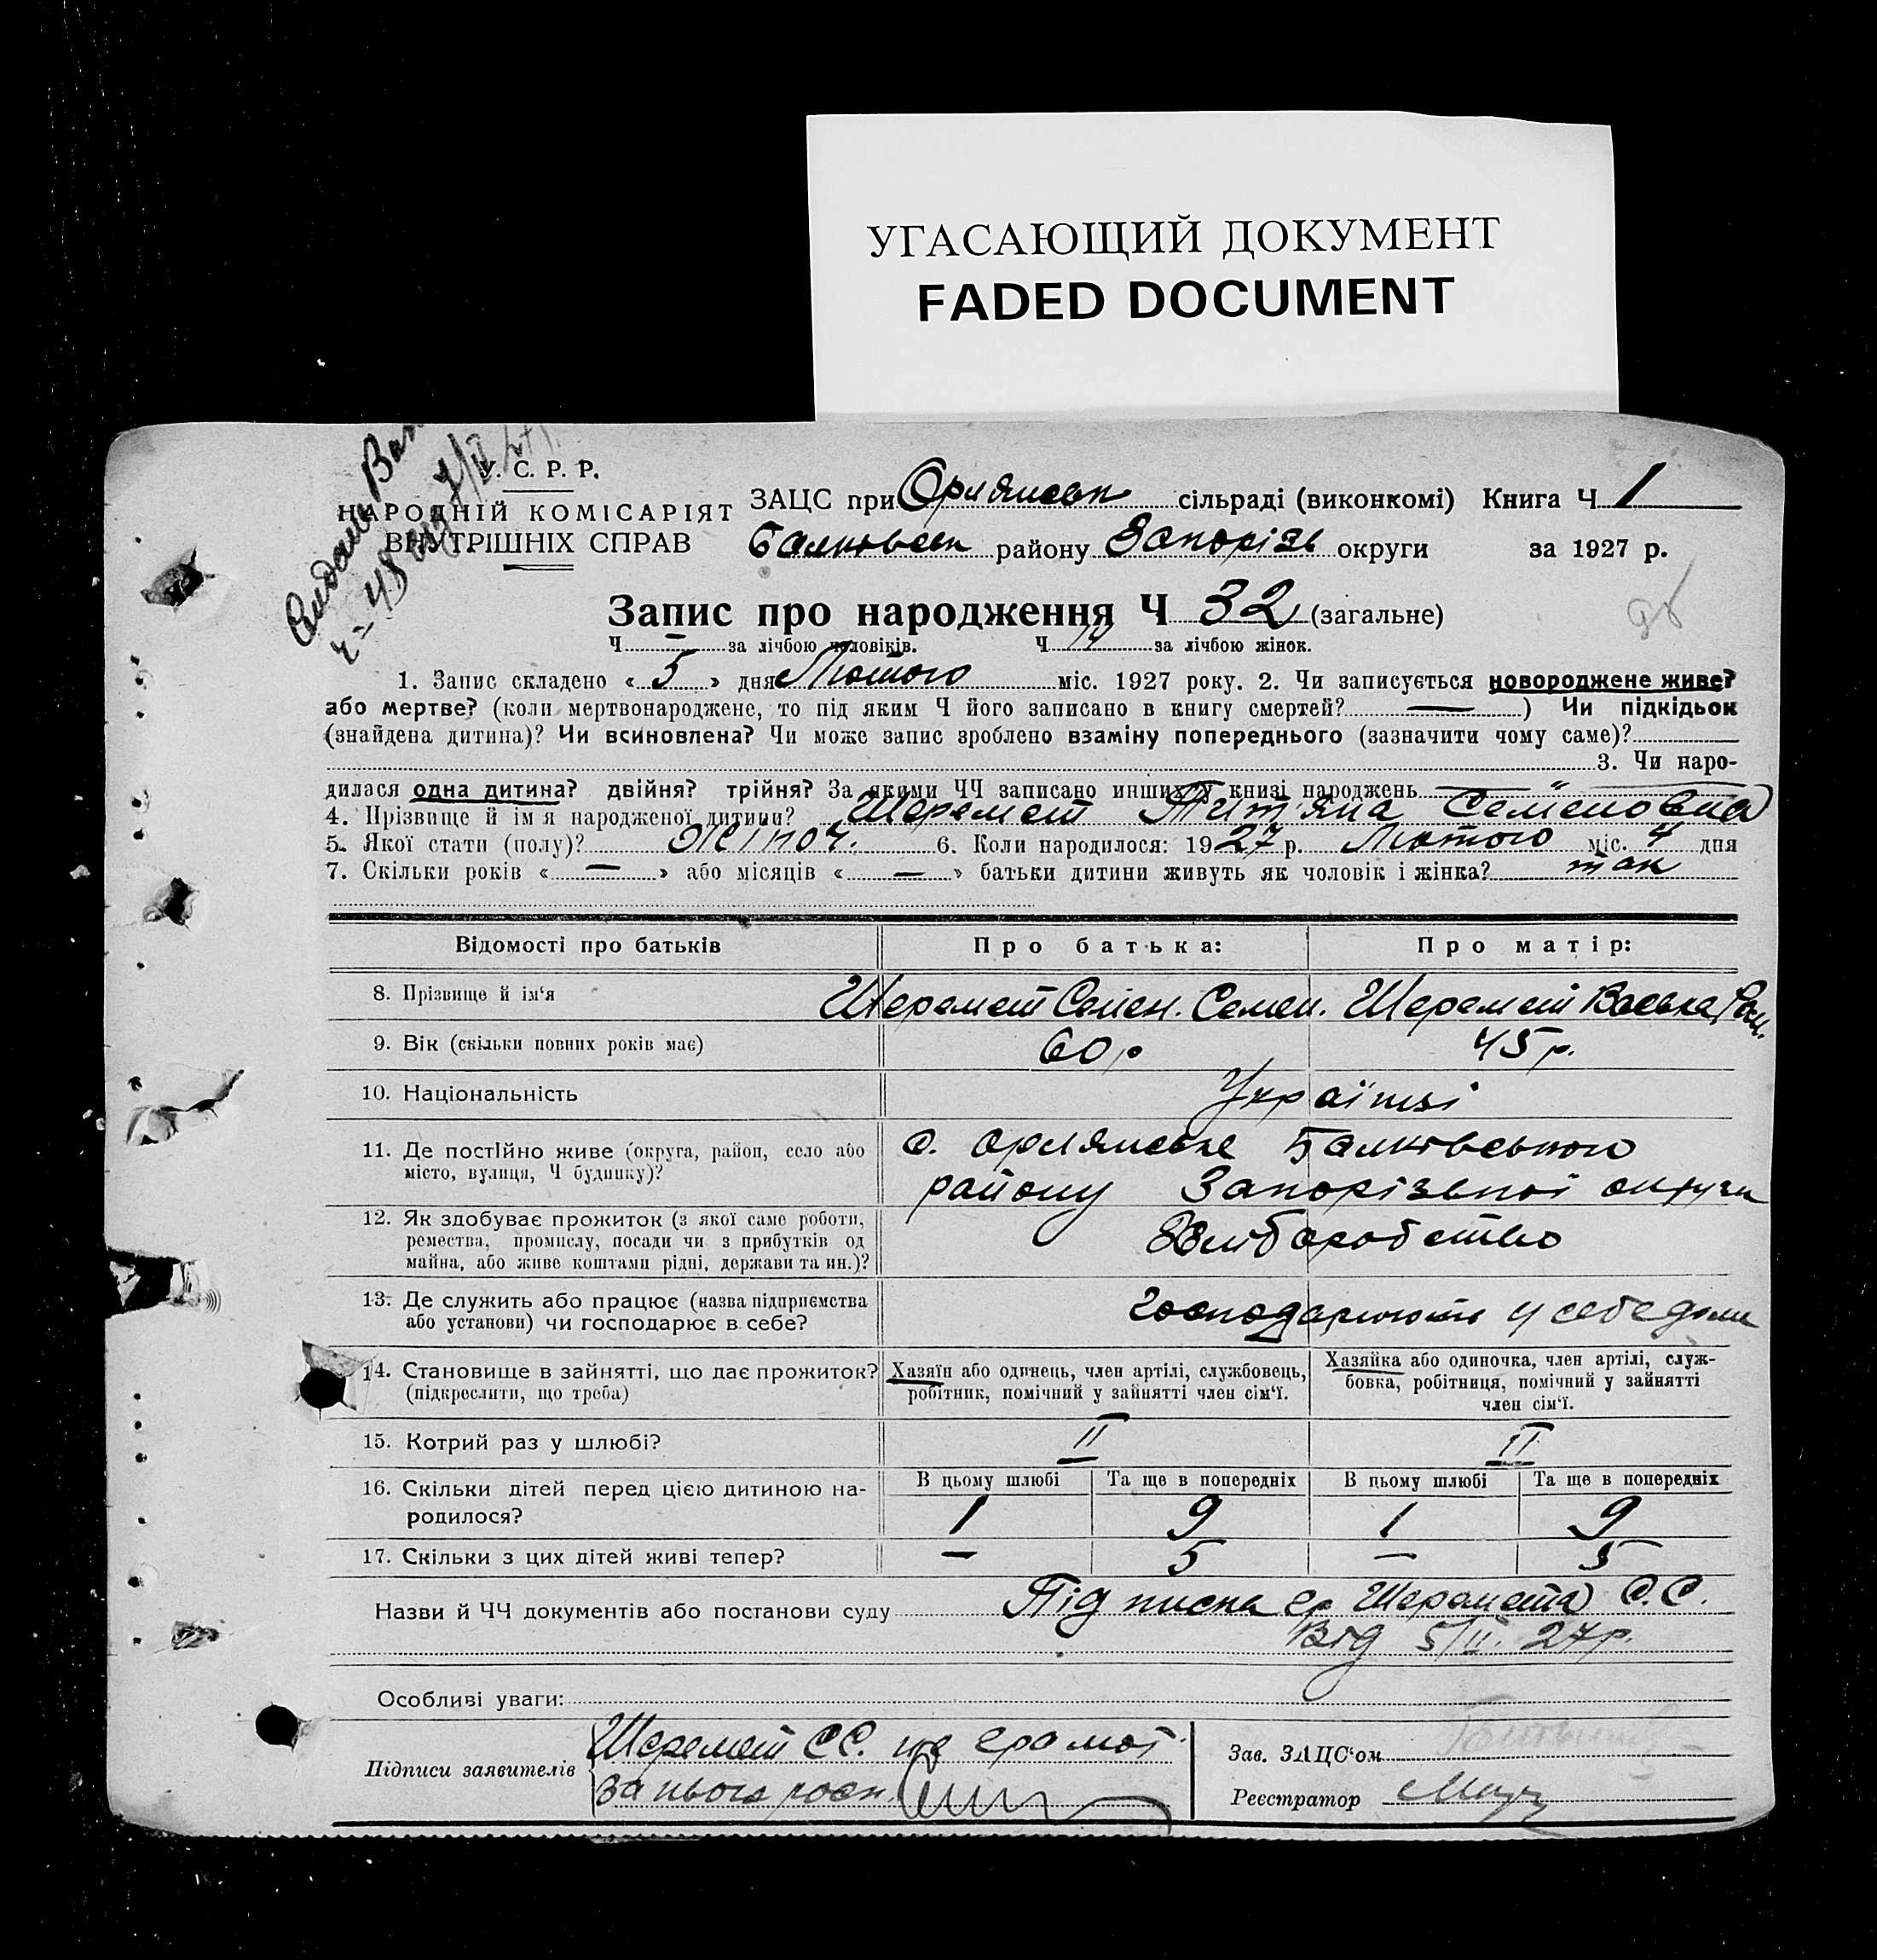 УГАСАЮЩИЙ ДОКУМЕНТ
FADED DOCUMENT
Видано Вип
Ч-48 від 7/II 27р.
У. С. Р. Р.
НАРОДНІЙ КОМІСАРІЯТ
ВНУТРІШНІХ СПРАВ
ЗАЦС при Орлянськ сільраді (виконкомі) Книга Ч 1
Балковськ району Запоріж округи за 1927 р.
Запис про народження Ч 32 (загальне)
Ч — за лічбою чоловіків. Ч 14 за лічбою жінок.
1. Запис складено « 5 » дня Лютого міс. 1927 року. 2. Чи записується новороджене живе?
або мертве? (коли мертвонароджене, то під яким Ч його записано в книгу смертей? — ) Чи підкідьок
(знайдена дитина)? Чи всиновлена? Чи може запис зроблено взаміну попереднього (зазначити чому саме)?
3. Чи наро-
дилася одна дитина? двійня? трійня? За якими ЧЧ записано инших у книзі народжень —
4. Прізвище й ім'я народженої дитини? Шеремет Тит'яна Семеновна
5. Якої стати (полу)? Жіноч. 6. Коли народилося: 1927 р. Лютого міс. 4 дня
7. Скільки років « — » або місяців « — » батьки дитини живуть як чоловік і жінка? так
Відомості про батьків Про батька: Про матір:
8. Прізвище й ім'я Шеремет Семен. Семен. Шеремет
9. Вік (скільки повних років має) 60 р 45 р.
10. Національність Українці
11. Де постійно живе (округа, район, село або
місто, вулиця, Ч будинку)?
с. Орлянське Балківського
району Запорізької округи
12. Як здобуває прожиток (з якої саме роботи,
ремества, промислу, посади чи з прибутків од
майна, або живе коштами рідні, держави та ин.)?
Хліборобство
13. Де служить або працює (назва підприємства
або установи) чи господарює в себе?
господарюють у себе дома
14. Становище в зайнятті, що дає прожиток?
(підкреслити, що треба)
Хазяїн або одинець, член артілі, службовець,
робітник, помічний у зайнятті член сім'ї.
Хазяйка або одиночка, член артілі, служ-
бовка, робітниця, помічний у зайнятті
член сім'ї.
15. Котрий раз у шлюбі? II II
16. Скільки дітей перед цією дитиною на-
родилося?
В цьому шлюбі Та ще в попередніх В цьому шлюбі Та ще в попередніх
1 9 1 9
17. Скільки з цих дітей живі тепер? — 5 — 5
Назви й ЧЧ документів або постанови суду Підписка гр. Шеремета С.С.
Від 5/II. 27р.
Особливі уваги:
Підписи заявителів
Шеремет С.С. не грамот.
за нього росп.
Зав. ЗАЦС'ом
Реєстратор